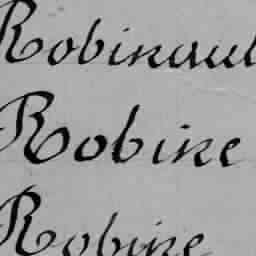 Robinaul
Robine
Robine